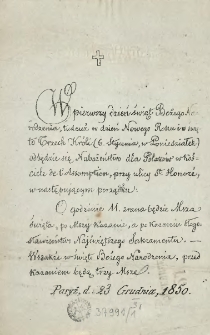 W pierwszy dzień świąt Bożego Na-
rodzenia, tudzież w dzień Nowego Roku i w świę-
to Trzech Króli (6. Stycznia, w Poniedziałek)
odbędzie się Nabożeństwo dla Polaków w koś-
ciele de l'Assomption, przy ulicy St. Honoré,
w następującym porządku:
O godzinie 11. zrana będzie Msza
Święta, po Mszy Kazanie, a po Kazaniu Bło-
gosławieństwo Najświętszego Sakramentu. —
Wszakże w święto Bożego Narodzenia, przed
Kazaniem będą trzy Msze.
Paryż, d. 23 Grudnia, 1850.